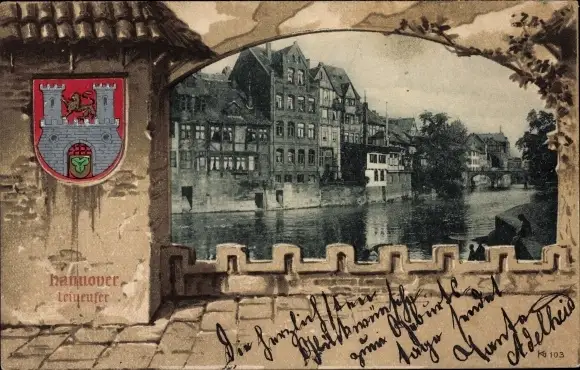 Hannover
Leineufer
Die herzlichsten
Glückwünsche
zum Geburts
tage sendet
Tante
Adelheid
103